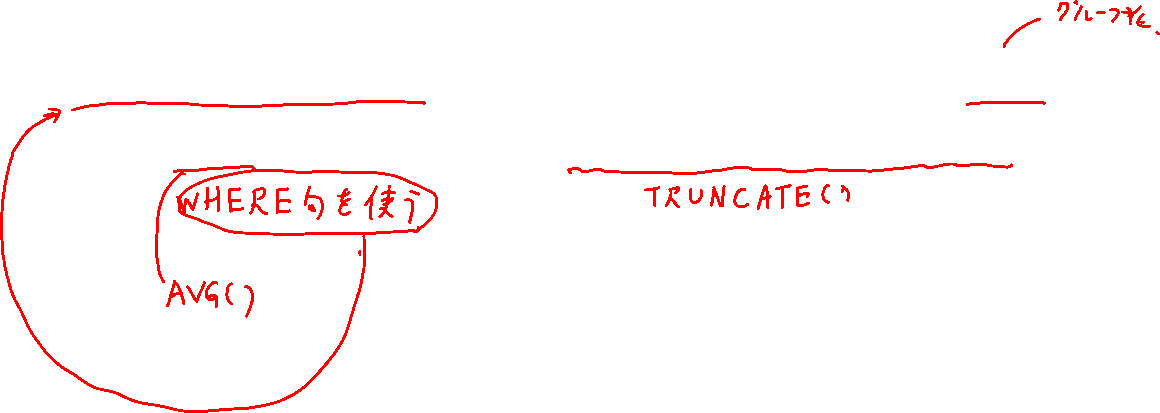 グループ化
WHERE句を使う
TRUNCATE()
AVG()